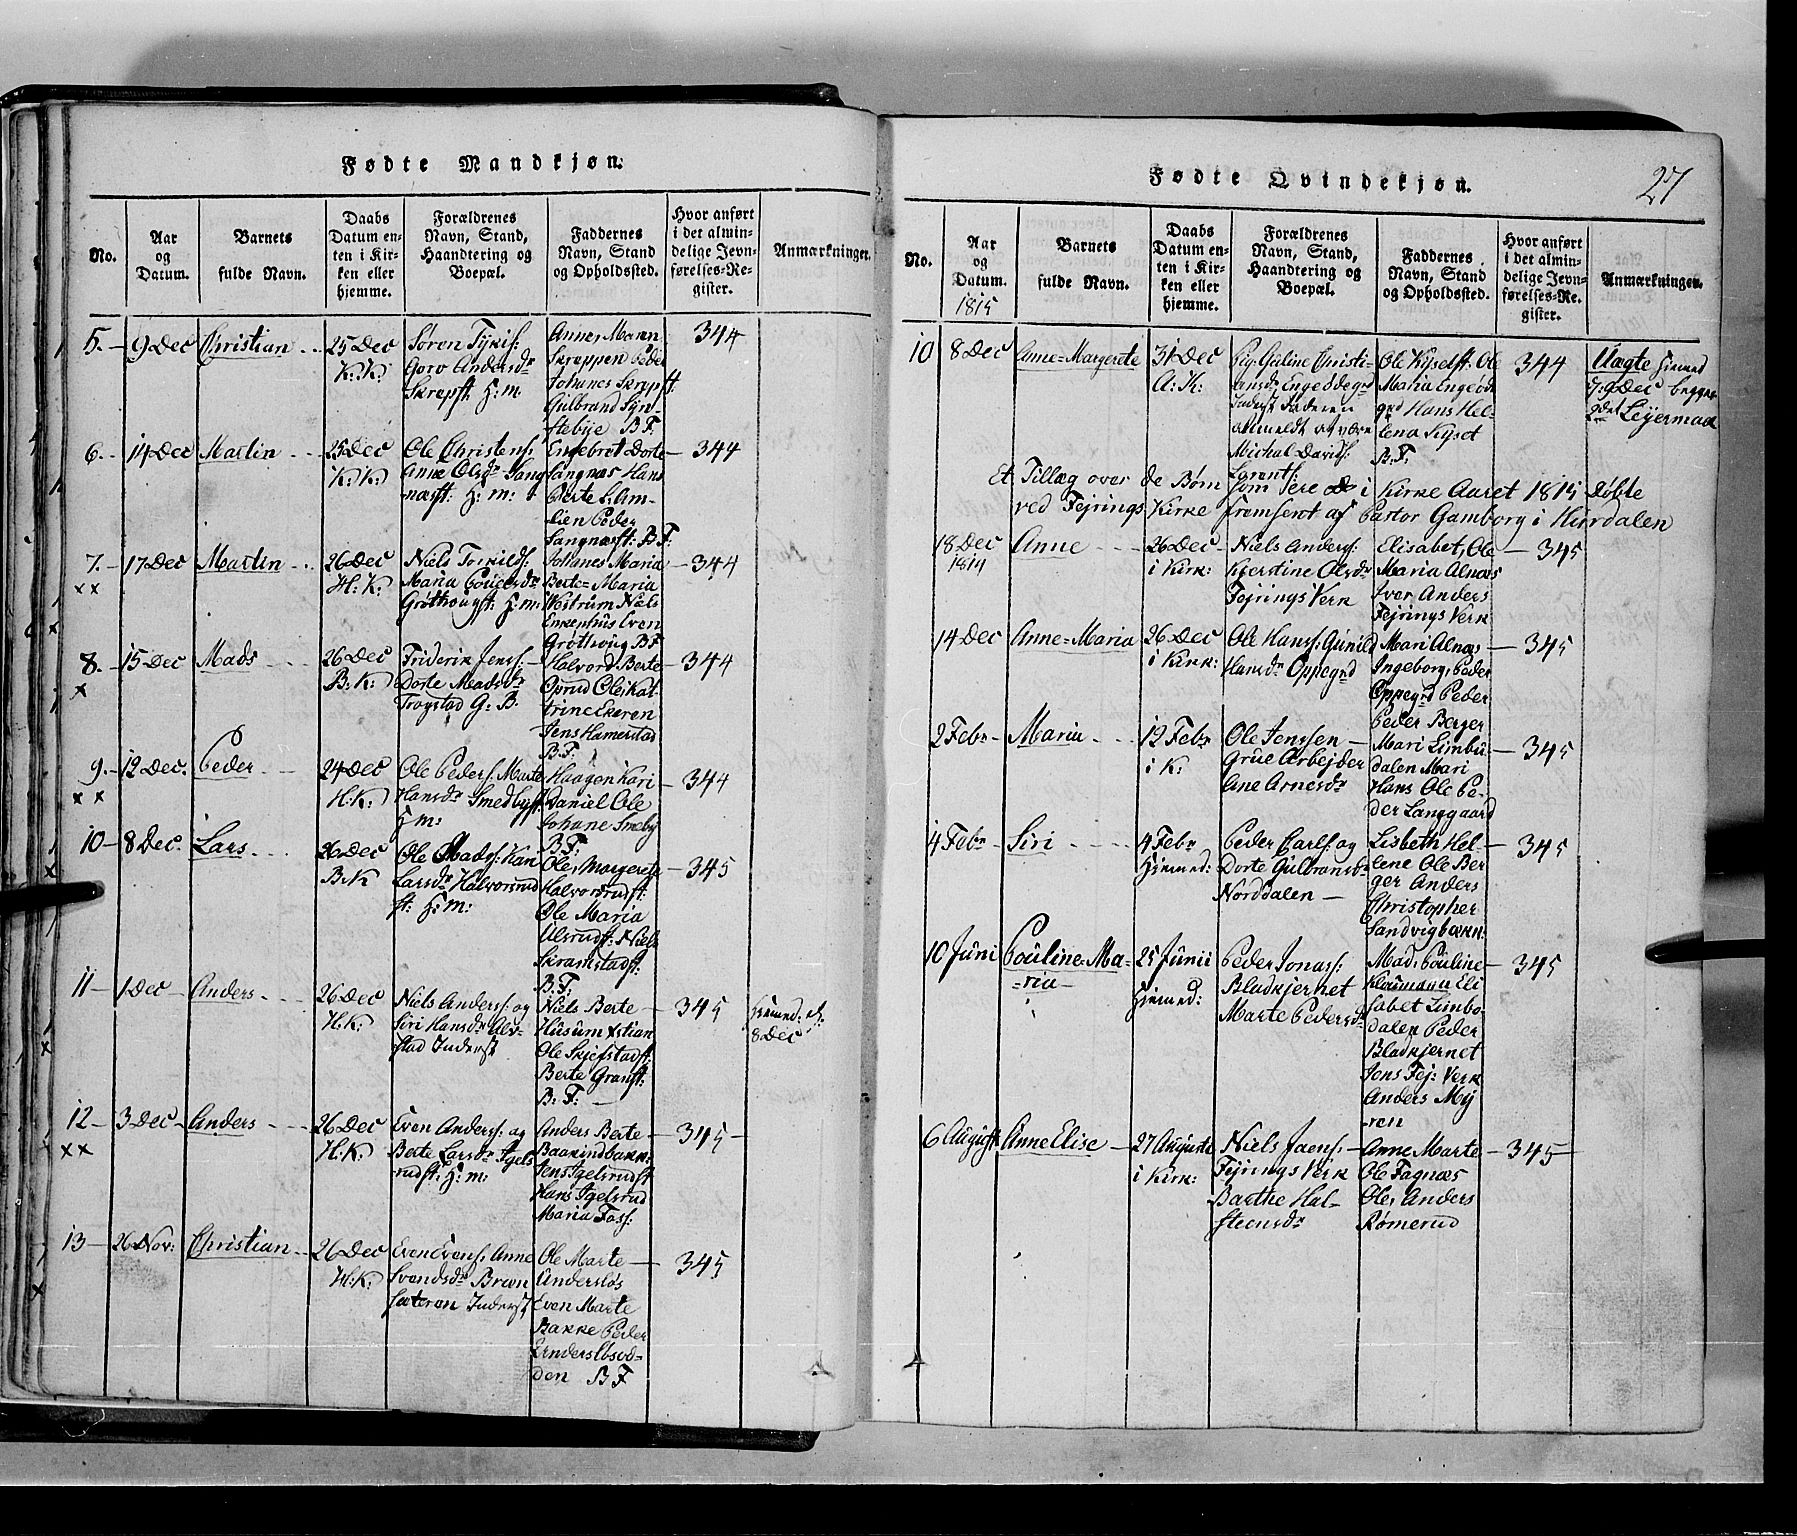 Fødte Mandkjøn.
No.
Aar
og
Datum.
Barnets
fulde Navn.
Daabs
Datum en-
ten i Kir-
ken eller
hjemme.
Forældrenes
Navn, Stand,
Haandtering og
Boepæl.
Faddernes
Navn, Stand
og Opholdssted.
Hvor anført
i det almin-
delige Jevn-
førelses-Re-
gister.
Anmærkninger.
5. 9 Dec Christian 25 Dec
K:K:
Andersdr
H:m:
Anne, Maren
Peder
Johanes
Gulbrand
B:F:
344
6. 14 Dec Martin 25 Dec
K:K:
Ole Christens:
Anne Olsdr Sang
næsst: H:m:
Engebret Dorte
Sangnæs Hans
Berte
Peder
Sangnæsst: B:F:
344
7. 17 Dec Martin 26 Dec
xx
H:K:
Niels Torkilds:
Maria
H:m:
Johanes Maria
Berte=Maria
Niels
Even
B F
344
8. 15 Dec Mads 26 Dec
x
B:K:
Friderik Jens:
Dorte Madsdr
Trogstad G:B.
Halvord, Berte
Oprud Ole Kat
trine Ekeren
Jens Hamerstad
B:F:
344
9. 12 Dec: Peder 24 Dec
xx
H:K:
Ole Peders: Marte
Hansdr
H:m:
Haagen Kari
Daniel Ole
Johane Smeby
B:F:
344
10 8 Dec: Lars 26 Dec
B:K
Ole Mads: Kari
Larsdr Halvorsrud
st: H:m:
Ole, Margereta
Halvorsrudst:
Ole Maria
Niels
Skramstadst:
B:F:
345
11 1 Dec Anders 26 Dec
H:K:
Niels Anders: og
Siri Hansdr
stad Inderst
Niels Berte
Husum xstian
Ole Skjefstadst:
Berte
B:F:
345
8 Dec
12 3 Dec Anders 26 Dec
xx
H:K:
Even Anders: og
Berte Larsdr Igels
rudst: H:m:
Anders Berte
Jens Igelsrudst
Hans Igelsrud
Maria
345
13 26 Nov: Christian 26 Dec
H:K:
Even Evens: Anne
Svendsdr Bræn
sæteren Inderst
Ole Marte
Andersløs
Even Marte
Bakke Peder
den B F
345
Fødte Qvindekjøn.
27
No.
Aar
og
Datum.
1815
Barnets
fulde Navn.
Daabs
Datum en-
ten i Kir-
ken eller
hjemme.
Forældrenes
Navn, Stand,
Haandtering og
Boepæl.
Faddernes
Navn, Stand
og Opholdssted.
Hvor anført
i det almin-
delige Jevn-
førelses-Re-
gister.
Anmærkninger.
10 8 Dec Anne=Margerete 31 Dec
A:K:
Pig: Christi-
ansdr
Inderst Faderen
anmeldt at være
Michal Davids:
Ole Ole
Maria
Hans Hel-
lena
B:F:
344
Uægte
9 Dec
Leyermaal
Et Tillæg over de Børn som ere i Kirke Aaret 1815 Døbte
ved Fejrings Kirke fremsent af Pastor Gamborg i Hurdalen
18 Dec
1814
Anne
26 Dec
i Kirk:
Niels Anders:
Kjerstine Olsdr
Fejrings Verk
Elisabet, Ole
Maria Alnæs
Iver Anders
Fejrings Verk
345
14 Dec Anne=Maria 26 Dec
i Kirk:
Ole Hans: Gunild
Hansdr Oppegrd
Mari Alnæs
Ingeborg, Peder
Oppegrd Peder
345
2 Febr Maria 12 Febr
i K:
Ole Jenssen
Grue Arbejder
Ane Arnesdr
Peder Berger
Mari Limbu
dalen Mari
Hans Ole Pe-
der Langgaard
345
4 Febr Siri 4 Febr
Hjemed:
Peder Carls: og
Dorte Gulbransdr
Norddalen
Lisbeth Hel-
lene Ole Ber
ger Anders
Christopher
Sandvigbakn:
345
10 Juni Pouline=Ma-
=ria
25 Junii
Hjemed:
Peder Jonas:
Bladkjernet
Marte Pedersdr
Mad: Pouline
Eli
sabet Limbo-
dalen Peder
Bladkjernet
Jens Fej: Verk
Anders My
ren
345
6 August Anne Elise 27 Auguste
i Kirk:
Niels Jaens:
Fejrings Verk
Barthe Hal-
steensdr
Anne Marte
Ole Fagnæs
Ole, Anders
Rømerud
345